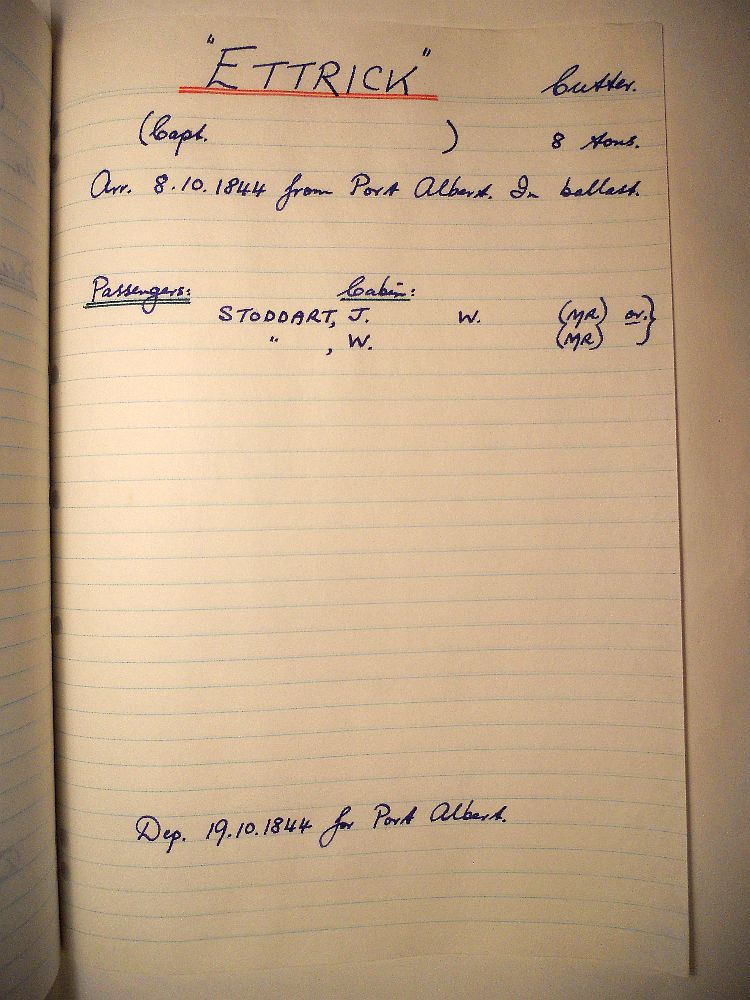 "ETTRICK" Cutter.
(Capt. ) 8 tons.
Arr. 8.10.1844 from Port Albert. In ballast.
Passengers: Cabin:
STODDART, J. W. (MR) or. }
" , W. (MR)
Dep. 19.10.1844 for Port Albert.